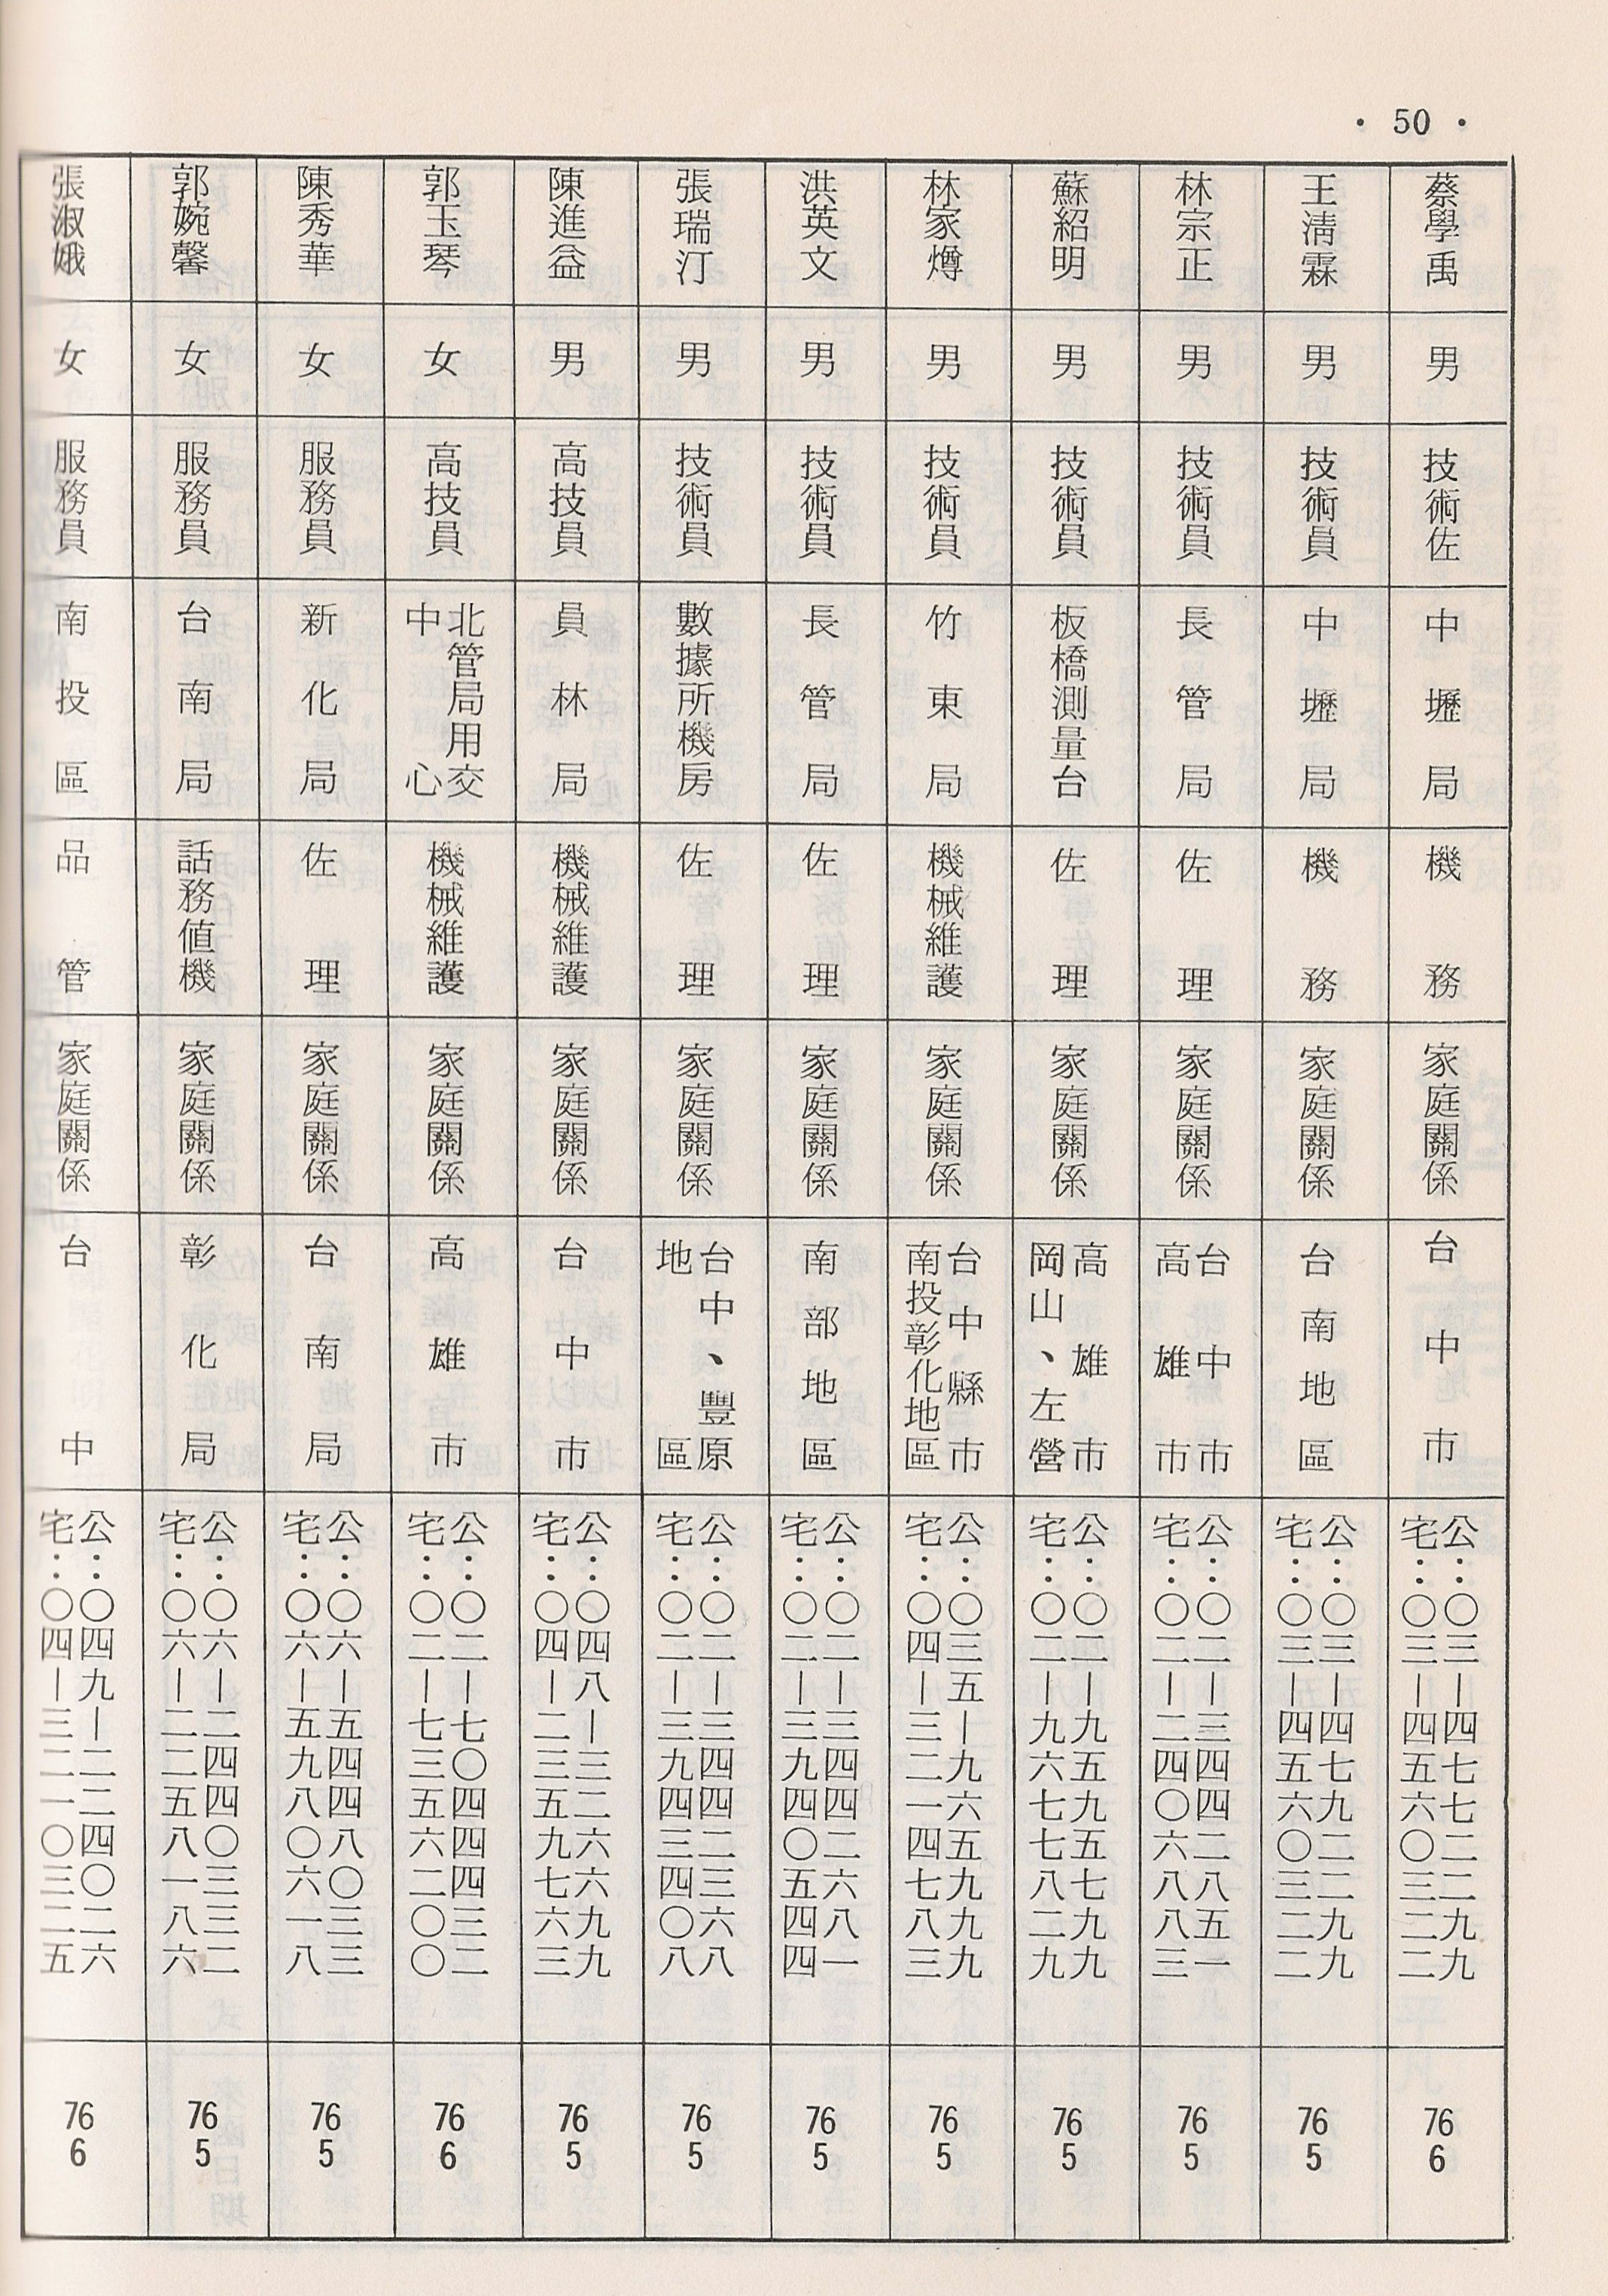 · 50 ·
蔡學禹
男
技術佐
中壢局
機務
家庭關係
台中市
公:〇三—四七七二二九九
宅:〇三—四五六〇三二二
76
6
王清霖
男
技術員
中壢局
機務
家庭關係
台南地區
公:〇三—四七九二二九九
宅:〇三—四五六〇三二二
76
5
林宗正
男
技術員
長管局
佐理
家庭關係
台中市
高雄市
公:〇二—三四四二八五一
宅:〇二—二四〇六八八三
76
5
蘇紹明
男
技術員
板橋測量台
佐理
家庭關係
高雄市
岡山、左營
公:〇二—九五九五七九九
宅:〇二—九六七七八二九
76
5
林家燇
男
技術員
竹東局
機械維護
家庭關係
台中縣市
南投彰化地區
公:〇三五—九六五九九九
宅:〇四—三二一四七八三
76
5
洪英文
男
技術員
長管局
佐理
家庭關係
南部地區
公:〇二—三四四二六八一
宅:〇二—三九四〇五四四
76
5
張瑞汀
男
技術員
數據所機房
佐理
家庭關係
台中、豐原
地區
公:〇二—三四四二三六八
宅:〇二—三九四三四〇八
76
5
陳進益
男
高技員
員林局
機械維護
家庭關係
台中市
公:〇四八—三二六六九九
宅:〇四—二三五九七六三
76
5
郭玉琴
女
高技員
北管局用交
中心
機械維護
家庭關係
高雄市
公:〇二—七〇四四四三二
宅:〇二—七三五六二〇〇
76
6
陳秀華
女
服務員
新化局
佐理
家庭關係
台南局
公:〇六—五四四八〇三三
宅:〇六—五九八〇六一八
76
5
郭婉馨
女
服務員
台南局
話務值機
家庭關係
彰化局
公:〇六—二四四〇三三二
宅:〇六—二二五八一八六
76
5
張淑娥
女
服務員
南投區
品管
家庭關係
台中
公:〇四九—二二四〇二六
宅:〇四—三二一〇三二五
76
6